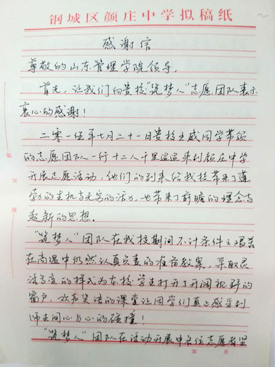 钢城区颜庄中学拟稿纸
感谢信
尊敬的山东管理学院领导:
首先,让我们向贵校“筑梦人”志愿团队表示
衷心的感谢!
二零一五年七月二十一日贵校 同学带领
的志愿团队一行十二人千里迢迢来到颜庄中学
开展志愿活动,他们的到来给我校带来了蓬
勃的生机与无穷的活力,也带来了新颖的理念与
超新的思想。
“筑梦人”团队在我校期间不计条件之艰苦
在高温中仍然认真负责的准备教案,采取灵
活多变的样式为本校学生打开了开阔视野的
窗户, 的课堂让同学们真正感受到
师生间心与心的碰撞!
“筑梦人”团队在活动开展中 志愿者